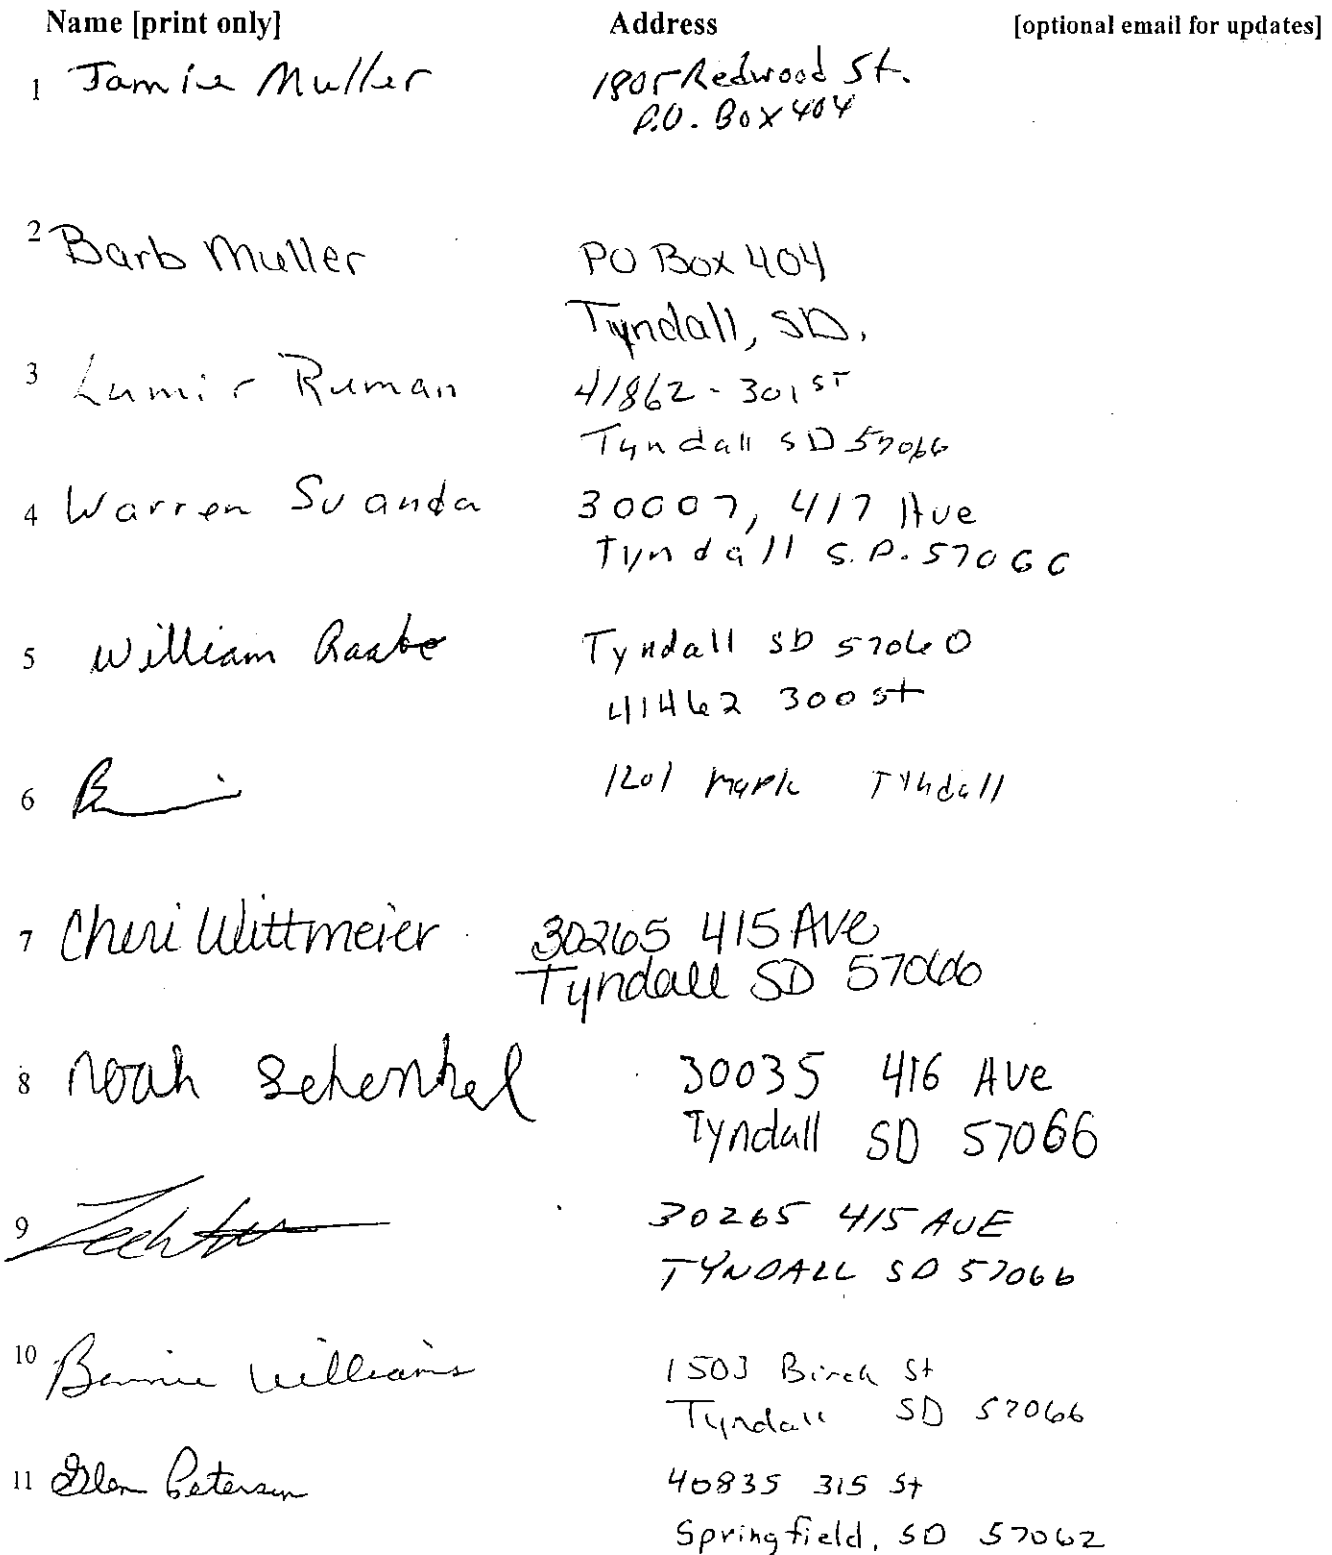 Name [print only] Address [optional email for updates]
1 Jamie Muller 1805 Redwood St.
P.O. Box 404
2 Barb Muller PO Box 404
Tyndall, SD.
3 Lumir Ruman 41862 - 301 ST
Tyndall SD 57066
4 Warren Svanda 30007, 417 Ave
Tyndall S.D. 57066
5 William Raabe Tyndall SD 57060
41462 300 St
6 1201 Maple Tyndall
7 Cheri Wittmeier 30265 415 AVe
Tyndall SD 57066
8 Noah Schenkel 30035 416 AVe
Tyndall SD 57066
9 30265 415 AVE
TYNDALL SD 57066
10 Bennie Williams 1503 Birch St
Tyndall SD 57066
11 Glen Peterson 40835 315 St
Springfield, SD 57062